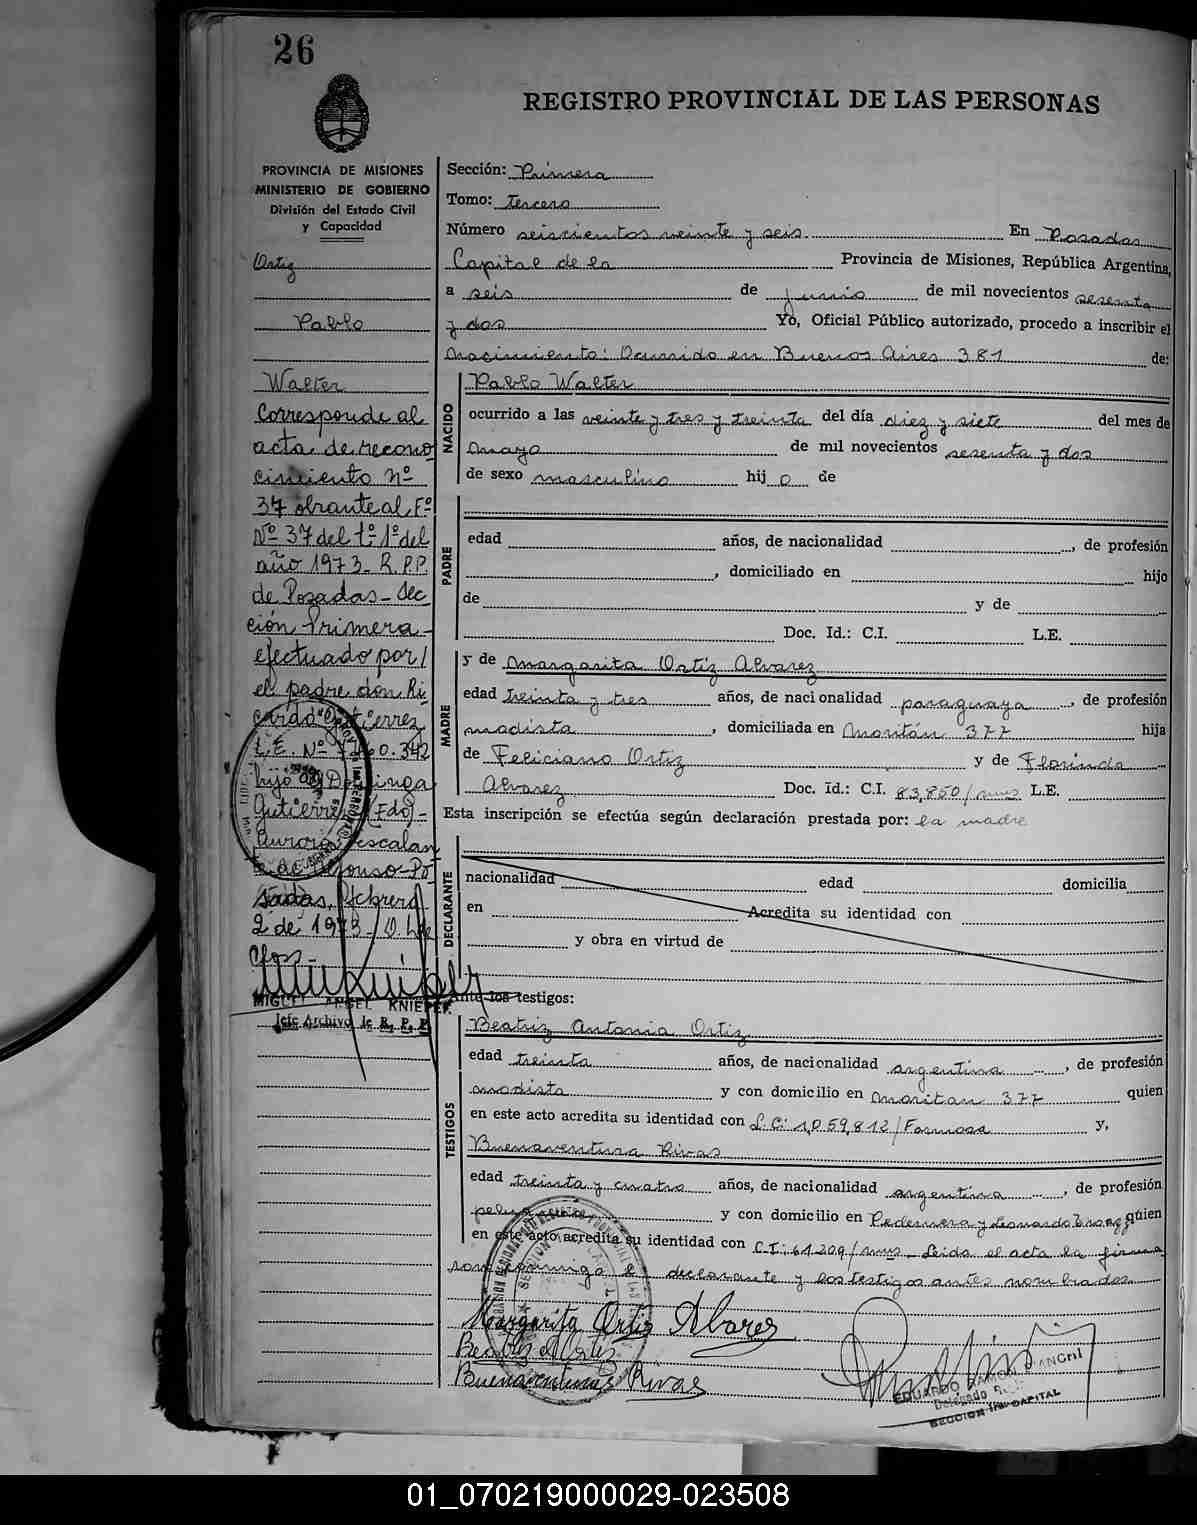 26
REGISTRO PROVINCIAL DE LAS PERSONAS
PROVINCIA DE MISIONES
MINISTERIO DE GOBIERNO
División del Estado Civil
y Capacidad
Ortiz
Pablo
Walter
Corresponde al
acta de recono
cimiento Nº
37 obrante al Fº
Nº 37 del tº 1º del
año 1973 - R.P.P.
de Posadas - Sec
ción Primera -
efectuado por/
el padre don Ri
cardo Gutierrez
L.E. Nº
hijo de Dominga
Gutierrez (Fdo) -
Aurora Escalan
te de Alfonso - Po
sadas, Febrero
2 de 1973 -
MIGUEL ANGEL KNIEPER
Jefe Archivo de R. P. P.
Sección: Primera
Tomo: tercero
Número seiscientos veinte y seis En Posadas
Capital de la Provincia de Misiones, República Argentina,
a seis de junio de mil novecientos sesenta
y dos Yo, Oficial Público autorizado, procedo a inscribir el
nacimiento: Ocurrido en Buenos Aires 381 de:
NACIDO
Pablo Walter
ocurrido a las veinte y tres y treinta del día diez y siete del mes de
mayo de mil novecientos sesenta y dos
de sexo masculino hij o de
PADRE
edad años, de nacionalidad , de profesión
, domiciliado en hijo
de y de
Doc. Id.: C.I. L.E.
MADRE
y de Margarita Ortiz Alvarez
edad treinta y tres años, de nacionalidad paraguaya , de profesión
modista , domiciliada en Moritán 377 hija
de Feliciano Ortiz y de Florinda
Alvarez Doc. Id.: C.I. 83,850/mns L.E.
Esta inscripción se efectúa según declaración prestada por: la madre
DECLARANTE
nacionalidad edad domicilia
en Acredita su identidad con
y obra en virtud de
Ante los testigos:
TESTIGOS
Beatriz Antonia Ortiz
edad treinta años, de nacionalidad argentina , de profesión
modista y con domicilio en Moritan 377 quien
en este acto acredita su identidad con L.C: 1,059,812/Formosa y,
Buenaventura Rivas
edad treinta y cuatro años, de nacionalidad argentina , de profesión
y con domicilio en Pedernera y Leonardo quien
en este acto acredita su identidad con C.I: 61209/mns - Leida el acta la firma
ron conmigo la declarante y los testigos antes nombrados
Margarita Ortiz Alvarez
Beatriz A Ortiz
Buenaventura Rivas
EDUARDO RAMON
Delegado
SECCION 1ra. CAPITAL
01_070219000029-023508